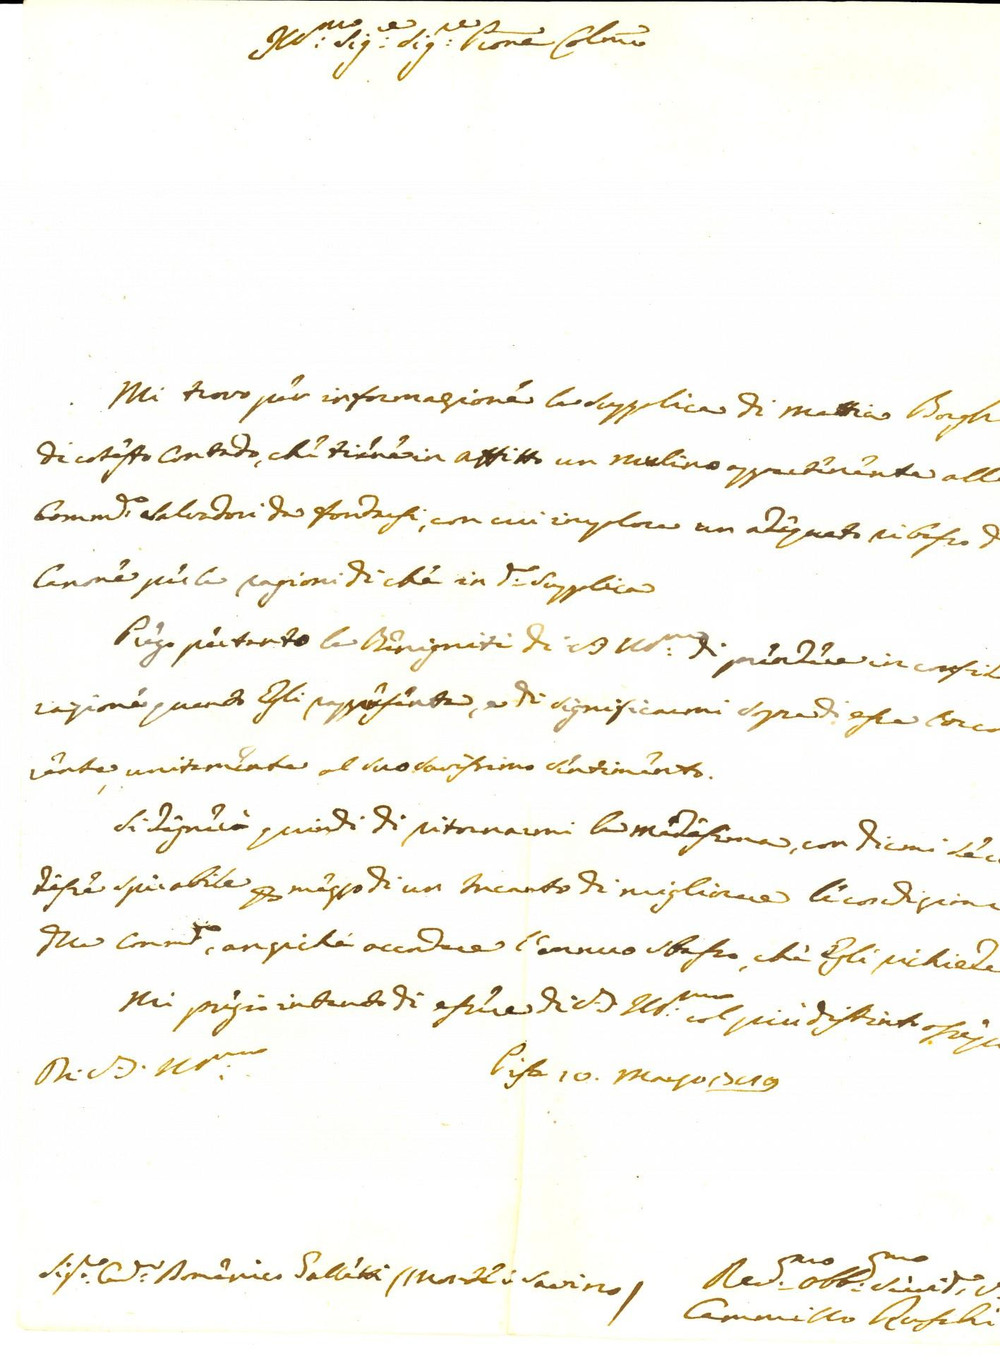 Ill.mo Sig.e Sig.re P̃rone Col.mo
Mi trovo per informazione la supplica di Mattia Borgh
di cotesto Contado, che tiene in affitto un mulino appartenente all
Comm.da Salvadori da, con cui implora un adequato ribasso d
Canone per le ragioni di che in d.a Supplica
Prego pertanto la Benignità di V.S. Ill.ma di prendere in consid
razione quanto Egli rappresenta, e di significarmi sopra di essa
rente, unitamente al suo savissimo sentimento.
Si degnerà quindi di ritornarmi la medesima, con dirmi se c
desse sperabile p mezzo di un Incanto di migliorare le condizioni
d.lla Comm.da, anziché accordare l'annuo sbasso, che Egli richiede
Mi pregio intanto di essere di V.S. Ill.ma col più distinto osseq
Di V.S. Ill.ma
Pisa 10. Marzo
Sig.r Cav.r Domenico Galletti (Monte S. Savino)
Dev.mo Obb.mo Servid.re V.
Cammillo Ruschi